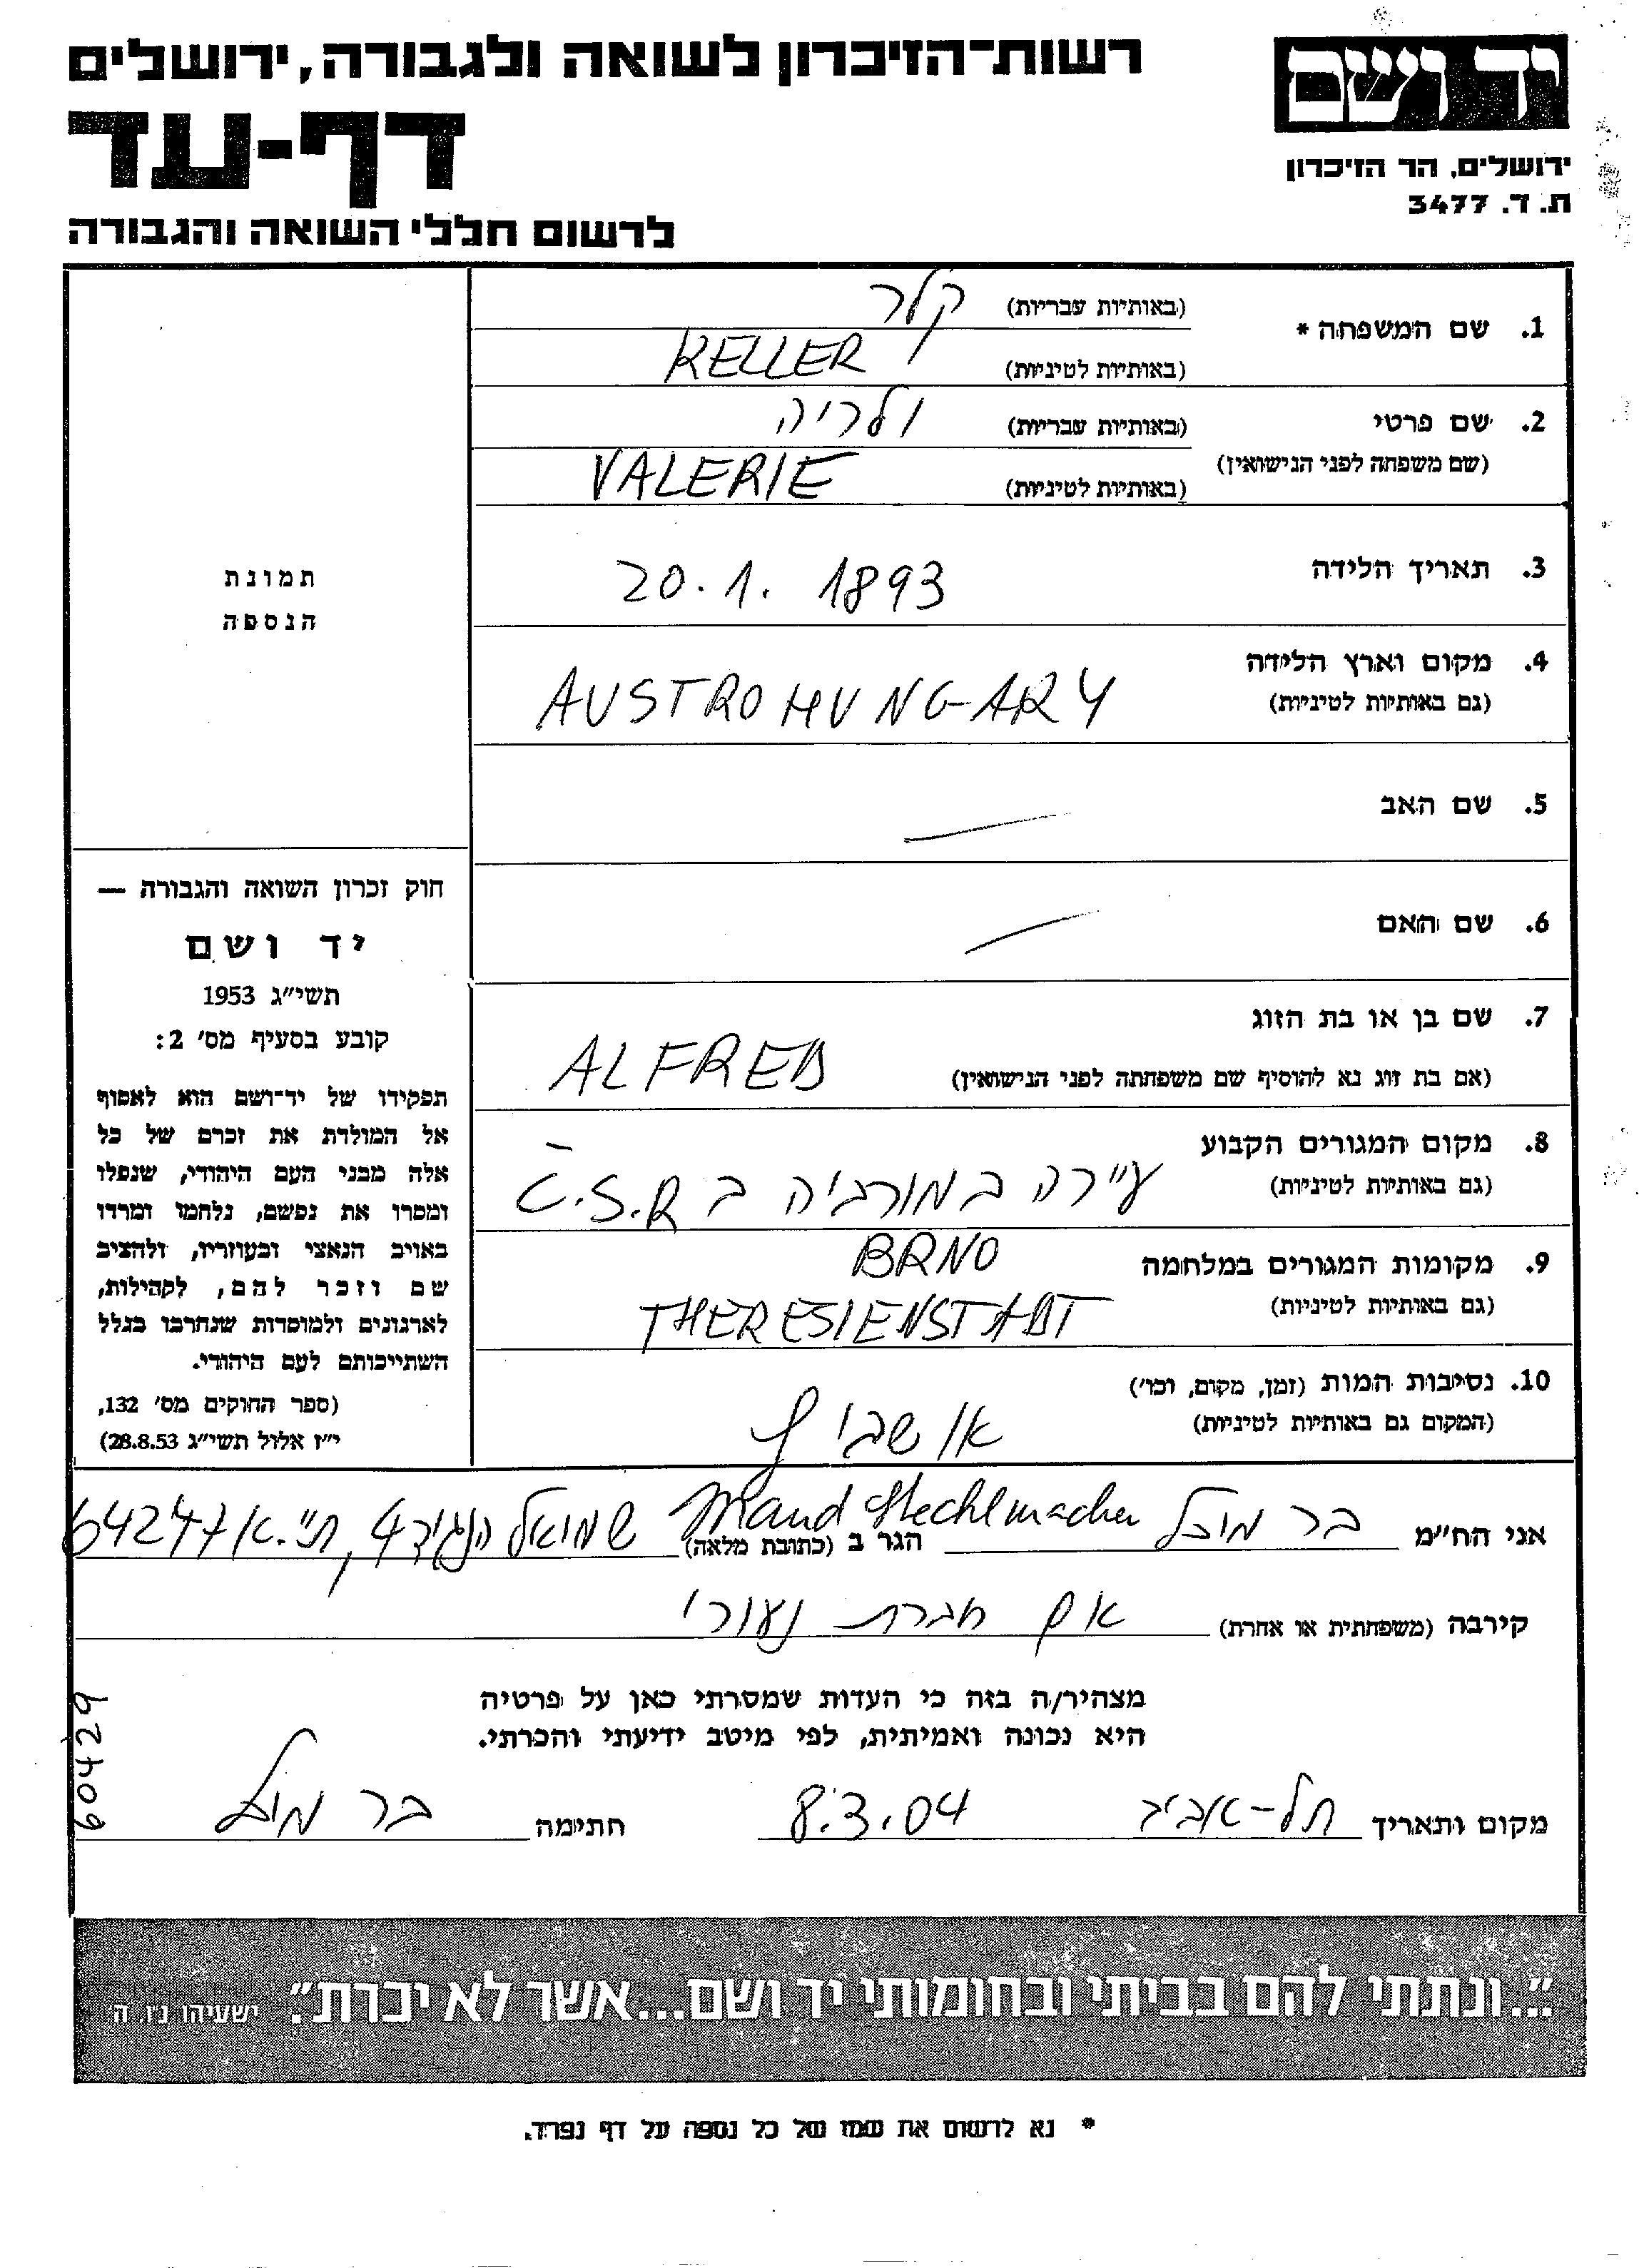 רשות־הזיכרון לשואה ולגבורה, ירושלים
דף-עד
לרשום חללי השואה והגבורה
יד ושם
ירושלים, הר הזיכרון
ת. ד. 3477
1. שם המשפחה *
(באותיות עבריות) קלר
(באותיות לטיניות) KELLER
2. שם פרטי
(באותיות עבריות) ולריה
(שם משפחה לפני הנישואין)
(באותיות לטיניות) VALERIE
3. תאריך הלידה 20.1.1893
4. מקום וארץ הלידה
(גם באותיות לטיניות) AUSTROHUNGARY
5. שם האב —
6. שם האם —
7. שם בן או בת הזוג
(אם בת זוג נא להוסיף שם משפחתה לפני הנישואין) ALFRED
8. מקום המגורים הקבוע
(גם באותיות לטיניות) עיירה במורביה ב Č.S.R
9. מקומות המגורים במלחמה BRNO
(גם באותיות לטיניות) THERESIENSTADT
10. נסיבות המות (זמן, מקום, וכו')
(המקום גם באותיות לטיניות) אושביץ
תמונת
הנספה
חוק זכרון השואה והגבורה —
יד ושם
תשי"ג 1953
קובע בסעיף מס' 2:
תפקידו של יד־ושם הוא לאסוף
אל המולדת את זכרם של כל
אלה מבני העם היהודי, שנפלו
ומסרו את נפשם, נלחמו ומרדו
באויב הנאצי ובעוזריו, ולהציב
שם וזכר להם, לקהילות,
לארגונים ולמוסדות שנחרבו בגלל
השתייכותם לעם היהודי.
(ספר החוקים מס' 132,
י"ז אלול תשי"ג 28.8.53)
אני הח"מ בר מיכל Maud Stechlmacher הגר ב (כתובת מלאה) שמואל הנגיד 4, ת"א 64247
קירבה (משפחתית או אחרת) אם חברת נעורי
מצהיר/ה בזה כי העדות שמסרתי כאן על פרטיה
היא נכונה ואמיתית, לפי מיטב ידיעתי והכרתי.
מקום ותאריך תל-אביב 8.3.04 חתימה בר מיכל
60429
"...ונתתי להם בביתי ובחומותי יד ושם...אשר לא יכרת". ישעיהו נו, ה
* נא לרשום את שמו של כל נספה על דף נפרד.